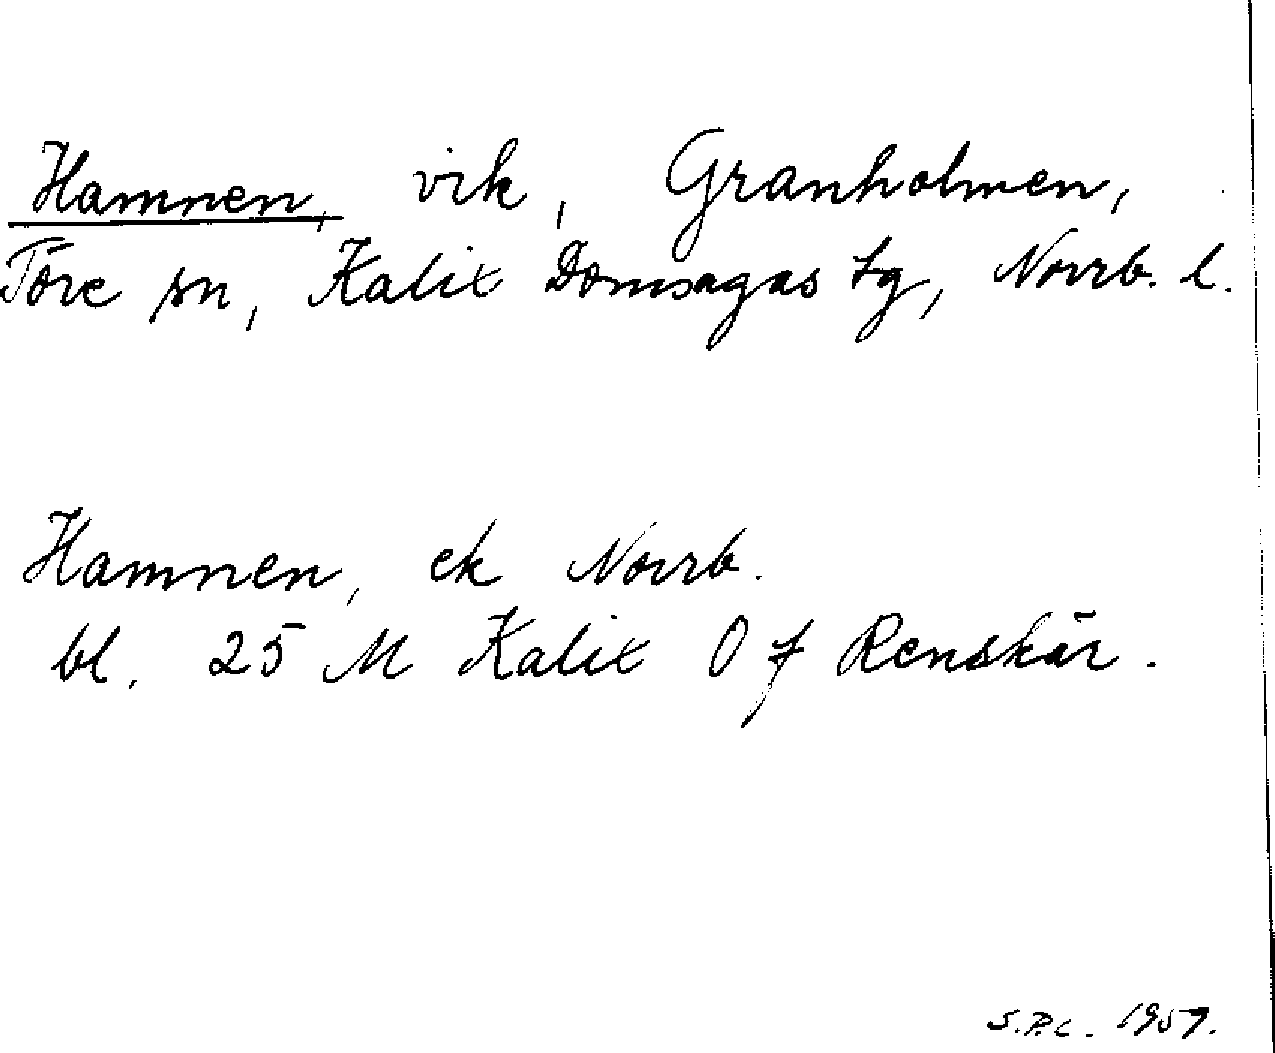 Hamnen, vik, Granholmen,
Töre sn, Kalix Domsagas tg, Norrb. l.
Hamnen, ek Norrb.
bl. 25 M Kalix O f Renskär.
S.P.C. 1957.